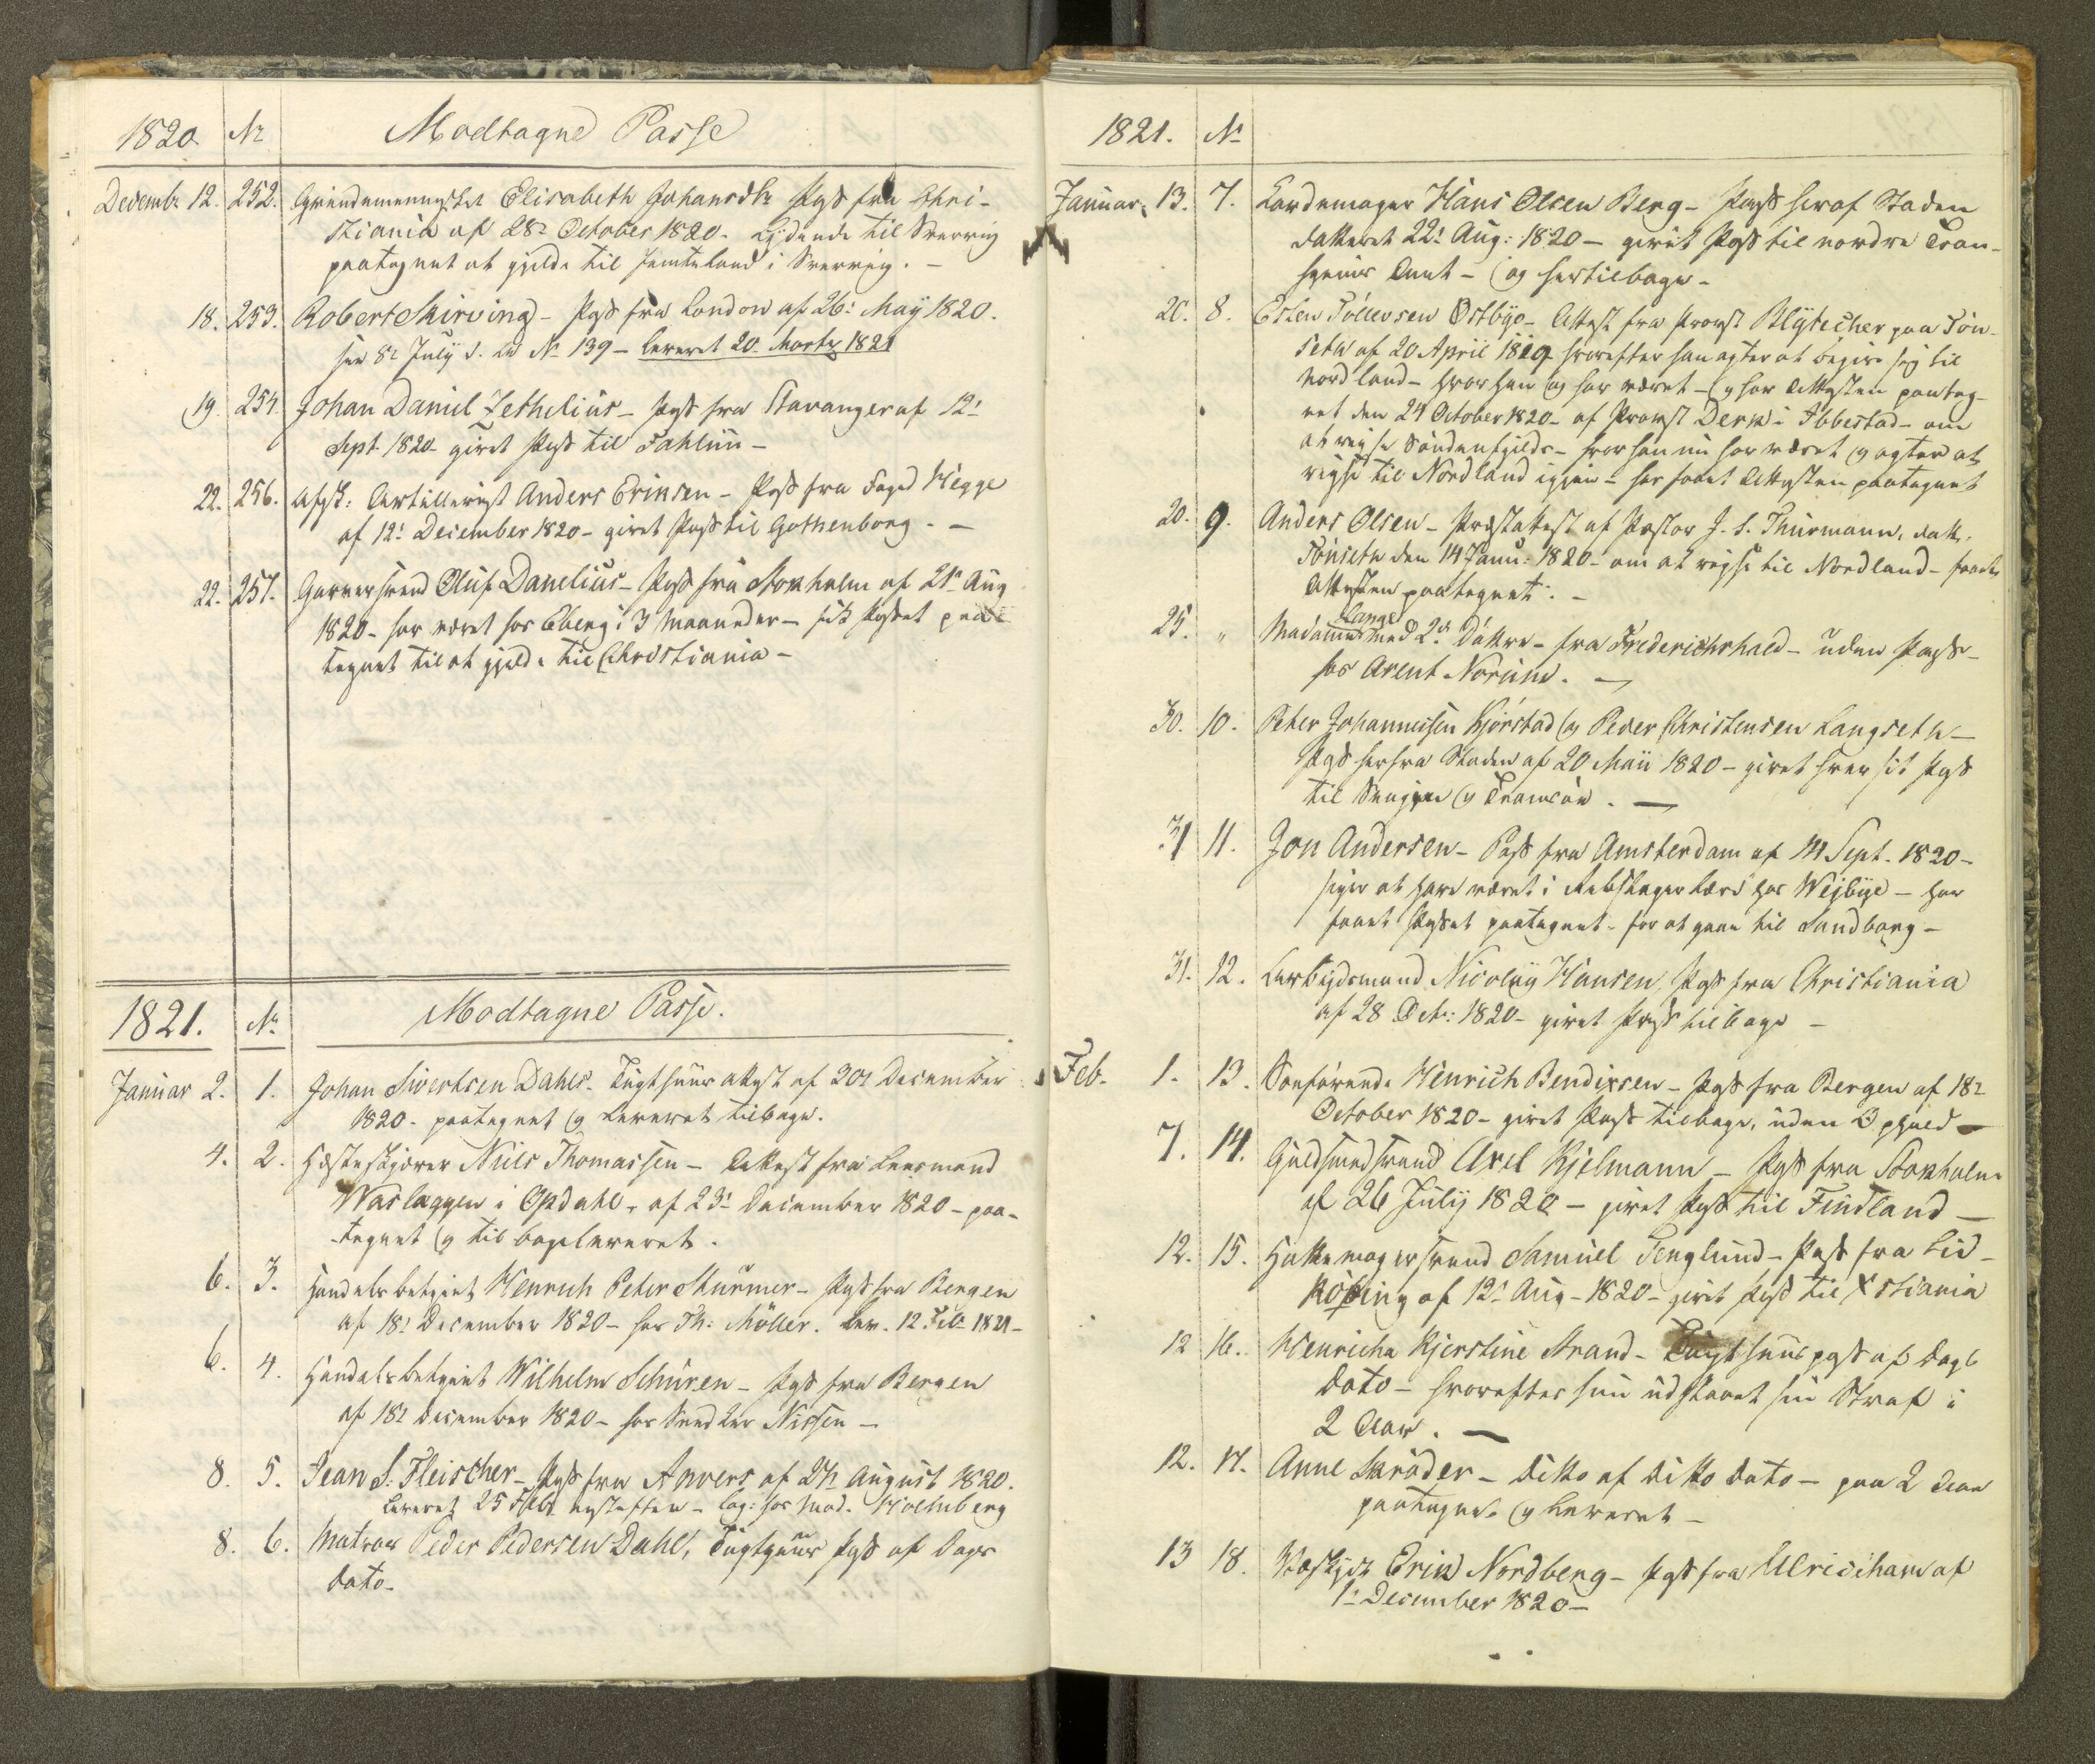 1820 Nr Modtagne Passe
Decembr 12. 252. Elisabeth Johansdtr Pass fra Chri-
stiania af 28r October 1820. lydende til Sverrig
paategnet at gjelde til Jemteland i Sverrig. -
18. 253. Robert Skirving - Pass fra London af 26r May 1820.
see 8r July No 139 - leveret 20. Martz 1821
19. 254. Johan Daniel Zethelius - Pass fra Stavanger af 12r
Sept. 1820 - givet Pass til Fahlun -
22. 256. Afsk: Artillerist Anders Eriksen - Pass fra Foged Hegge
af 12r December 1820 - givet Pass til Gothenborg. -
22. 257. Garversvend Oluf Danelius - Pass fra Stokholm af 21r Aug
1820 - har været hos Eberg i 3 Maaneder - fik Passet paa-
tegnet til at gjelde til Christiania -
1821. Nr. Modtagne Passe.
Januar 2. 1. Johan Sivertsen Dahls - Tugthuus attest af 20r December
1820 - paategnet og leveret tilbage.
4. 2. Hesteskjærer Niels Thomassen - Attest fra Lensmand
Waslaggen i Opdahl, af 23r December 1820 - paa-
tegnet og tilbageleveret.
6. 3. Handelsbetjent Henrich Peter Sturmer - Pass fra Bergen
af 18r December 1820 - hos Th: Möller. Lev. 12. Feb 1821 -
6. 4. Handelsbetjent Wilhelm Schuren - Pass fra Bergen
af 18r December 1820 - hos Nissen -
8. 5. Jean S. Fleischer - Pass fra Anvers af 27r August 1820.
Leveret 25 Feb - log: hos Mad. Holmberg
8. 6. Matros Peder Pedersen Dahl, Tugthuus Pass af Dags
Dato -
1821. No
Januar. 13. 7. Kardemager Hans Olsen Berg - Pass heraf Staden
datteret 22r Aug: 1820 - givet Pass til nordre Tron-
hjems Amt - og hertilbage -
20. 8. Esten Tollevsen Østbye - Attest fra Provst Blytecher paa Tön-
seth af 20 April 1819 hvorefter han agter at begive sig til
Nordland - hvor han og har været - og har Attesten paateg-
net den 24 October 1820 - af Provst Derk i Ibbestad - om
at reyse Søndenfjelds - hvor han nu har været og agter at
reyse til Nordland igjen - har faaet Attesten paategnet
20. 9. Anders Olsen - Præstattest af Pastor J. S. Thurmann, datt.
Tönseth den 14 Janu: 1820 - om at reyse til Nordland - faaet
Attesten paategnet. -
25. " Madame Lange med 2de Döttre - fra Frederichshald - uden Pass -
hos Arent Norum. -
30. 10. Peter Johannesen Kjörstad og Peder Christensen Langseth -
Pass herfra Staden af 20 Maii 1820 - givet hver sit Pass
til Senjen og Tromsöe. -
31 11. Jon Andersen - Pass fra Amsterdam af 14 Sept. 1820 -
siger at have været i Rebslager Lære hos Wejbye - har
faaet Passet paategnet - for at gaae til Sundborg -
31. 12. Arbeydsmand Nicolay Hansen, Pass fra Christiania
af 28 Octr: 1820 - givet Pass tilbage -
Feb. 1. 13. Henrich Bendixsen - Pass fra Bergen af 18r
October 1820 - givet Pass tilbage, uden Ophold -
7. 14. Guldsmedsvend Axel Kjelmann - Pass fra Stokholm
af 26 July 1820 - givet Pass til Findland -
12. 15. Hattemagersvend Samuel Tenglund - Pass fra Lid-
köping af 12r Aug - 1820 - givet Pass til Xstiania
12 16. Henricha Kjerstine Strand - Tugthuuspass af Dags
Dato - hvorefter hun udstaaet sin Straf i
2 Aar. -
12. 17. Anne Skröder - ditto af ditto Dato - paa 2 Aar
paategnet og leveret -
13 18. Erik Nordberg - Pass fra Ulricihamn af
1r December 1820 -